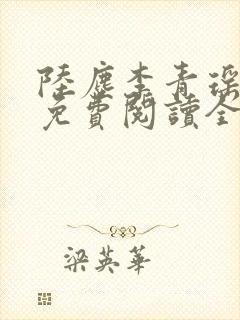 陸塵李青瑤
免費閱讀全
梁英華